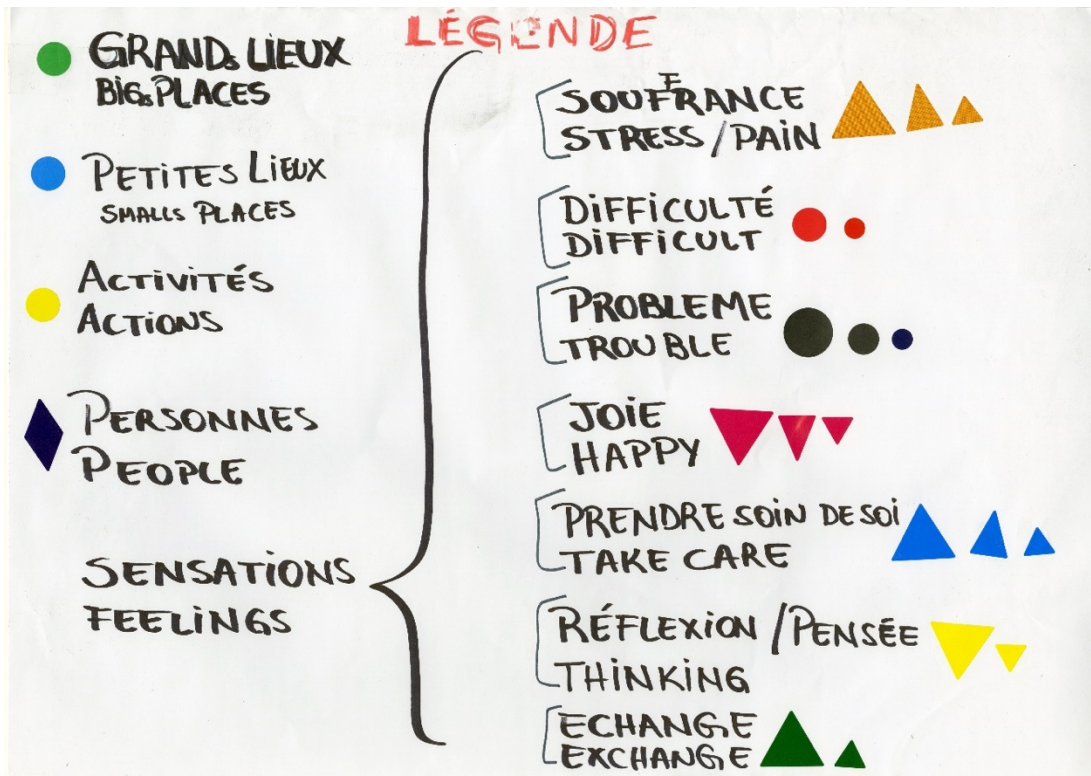 LÉGENDE
GRANDS LIEUX
BIGS PLACES
PETITES LIEUX
SMALLS PLACES
ACTIVITÉS
ACTIONS
PERSONNES
PEOPLE
SENSATIONS
FEELINGS
SOUFFRANCE
STRESS / PAIN
DIFFICULTÉ
DIFFICULT
PROBLEME
TROUBLE
JOIE
HAPPY
PRENDRE SOIN DE SOI
TAKE CARE
RÉFLEXION / PENSÉE
THINKING
ECHANGE
EXCHANGE